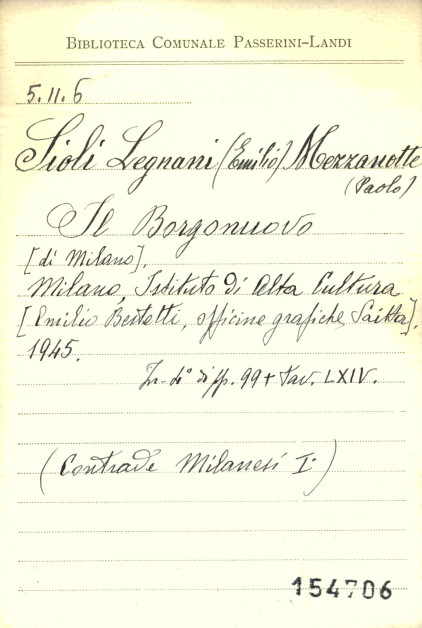 BIBLIOTECA COMUNALE PASSERINI-LANDI
5.11.6
Sioli Legnani (Emilio) Mezzanotte
(Paolo)
Il Borgonuovo
[di Milano],
Milano, Istituto di Alta Cultura
[Emilio Bestetti, officine grafiche Saitta].
1945.
In-4° di pp. 99 + Tav. LXIV.
(Contrade Milanesi I°)
154706